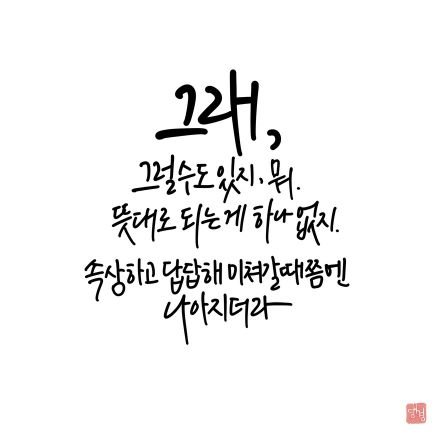 그래,
그럴수도 있지. 뭐.
뜻대로 되는게 하나 없지.
속상하고 답답해 미쳐갈때쯤엔
나아지더라